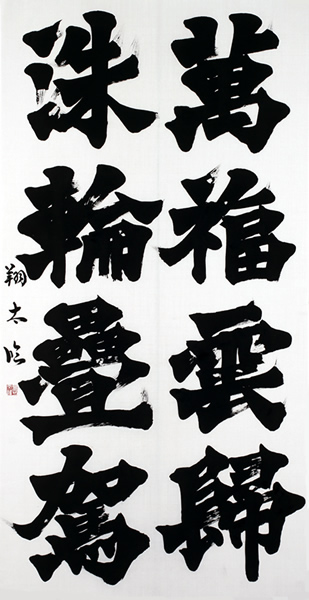 萬福雲歸
洙輪疊駕
翔太臨